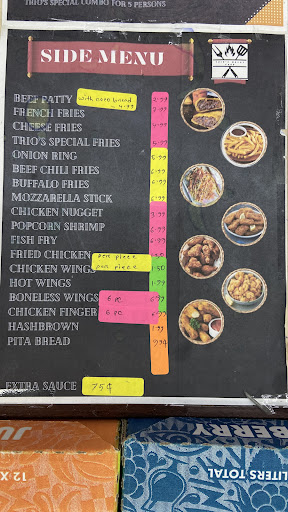 TRIO'S SPECIAL COMBO FOR 5 PERSONS
SIDE MENU
BEEF PATTY with coco bread 4.99 2.99
FRENCH FRIES 2.99
CHEESE FRIES
TRIO'S SPECIAL FRIES
ONION RING
BEEF CHILI FRIES 6.99
BUFFALO FRIES 6.99
MOZZARELLA STICK
CHICKEN NUGGET
POPCORN SHRIMP 6.99
FISH FRY
FRIED CHICKEN per piece
CHICKEN WINGS per piece 1.50
HOT WINGS 1.99
BONELESS WINGS 6 pc 6.99
CHICKEN FINGER 6 pc 6.99
HASHBROWN 1.99
PITA BREAD
EXTRA SAUCE 75¢
12 X
LITERS TOTAL